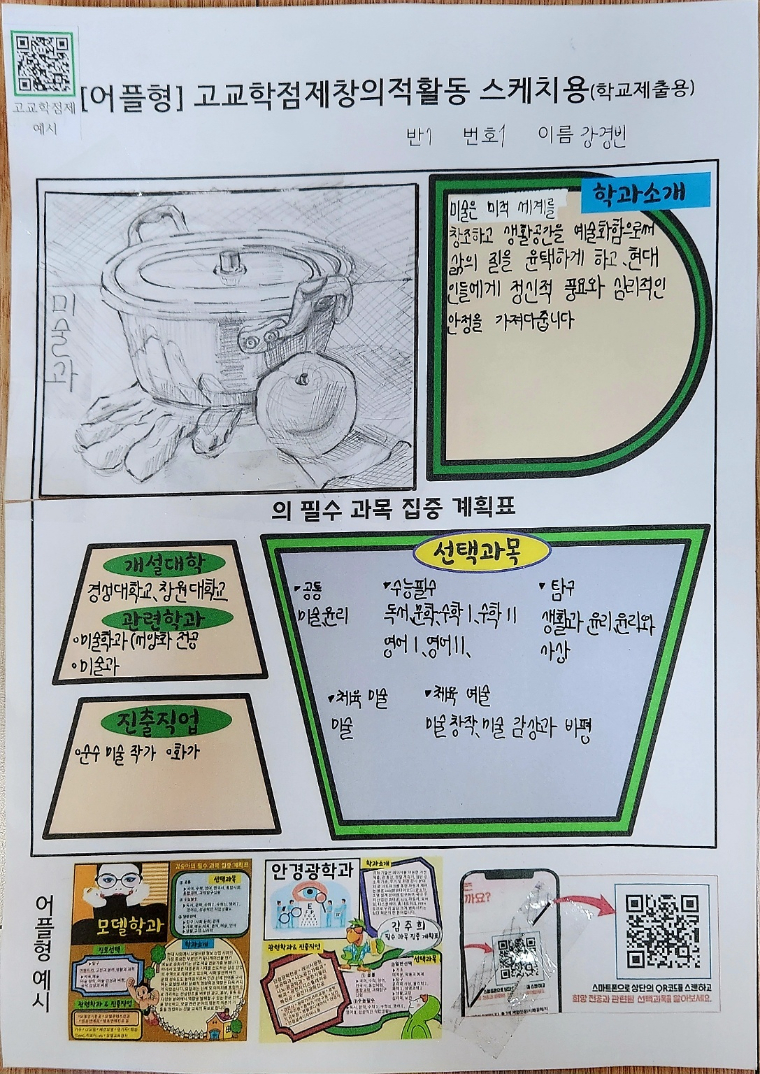 고교학점제
예시
[어플형] 고교학점제창의적활동 스케치용(학교제출용)
반1 번호1 이름 강경빈
미술과
학과소개
미술은 미적 세계를
창조하고 생활공간을 예술화함으로써
삶의 질을 윤택하게 하고, 현대
인들에게 정신적 풍요와 심리적인
안정을 가져다줍니다
의 필수 과목 집중 계획표
개설대학
경성대학교, 창원대학교
관련학과
미술학과(서양화 전공
미술과
진출직업
순수 미술 작가 화가
선택과목
공통 수능필수 탐구
미술,윤리 독서,문학,수학Ⅰ,수학Ⅱ 생활과 윤리,윤리와
영어Ⅰ,영어Ⅱ, 사상
체육 미술 체육 예술
미술 미술 창작, 미술 감상과 비평
어플형 예시
선택과목
모델학과
진로선택
학과소개
관련학과 & 진출직업
안경광학과
학과소개
김주희
필수 과목 집중 계획표
관련학과 & 진출직업
선택과목
까요?
스마트폰으로 상단의 QR코드를 스캔하고
희망 전공과 관련된 선택과목을 알아보세요.